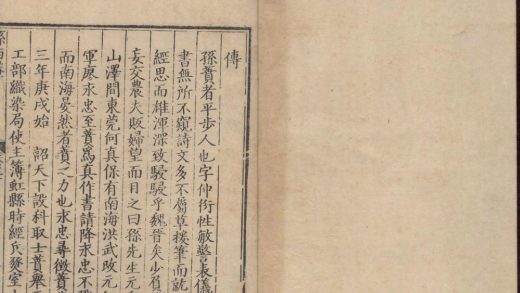 傳
孫蕡者平步人也字仲衍性敏慧表儀
書無所不窺詩文多不屬草援筆而就
經思而雄渾深致駸駸乎魏晉矣少負
妄交農夫販婦望而目之曰孫先生元
山澤間東莞何真保有南海洪武改元
軍廖永忠至蕡爲真作書請降永忠不
而南海晏然者蕡之力也永忠尋徵蕡
三年庚戌始 詔天下設科取士蕡舉
工部織染局使主簿虹縣時經兵發室